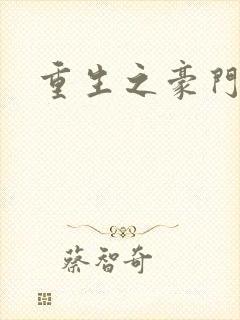 重生之豪門
蔡智奇